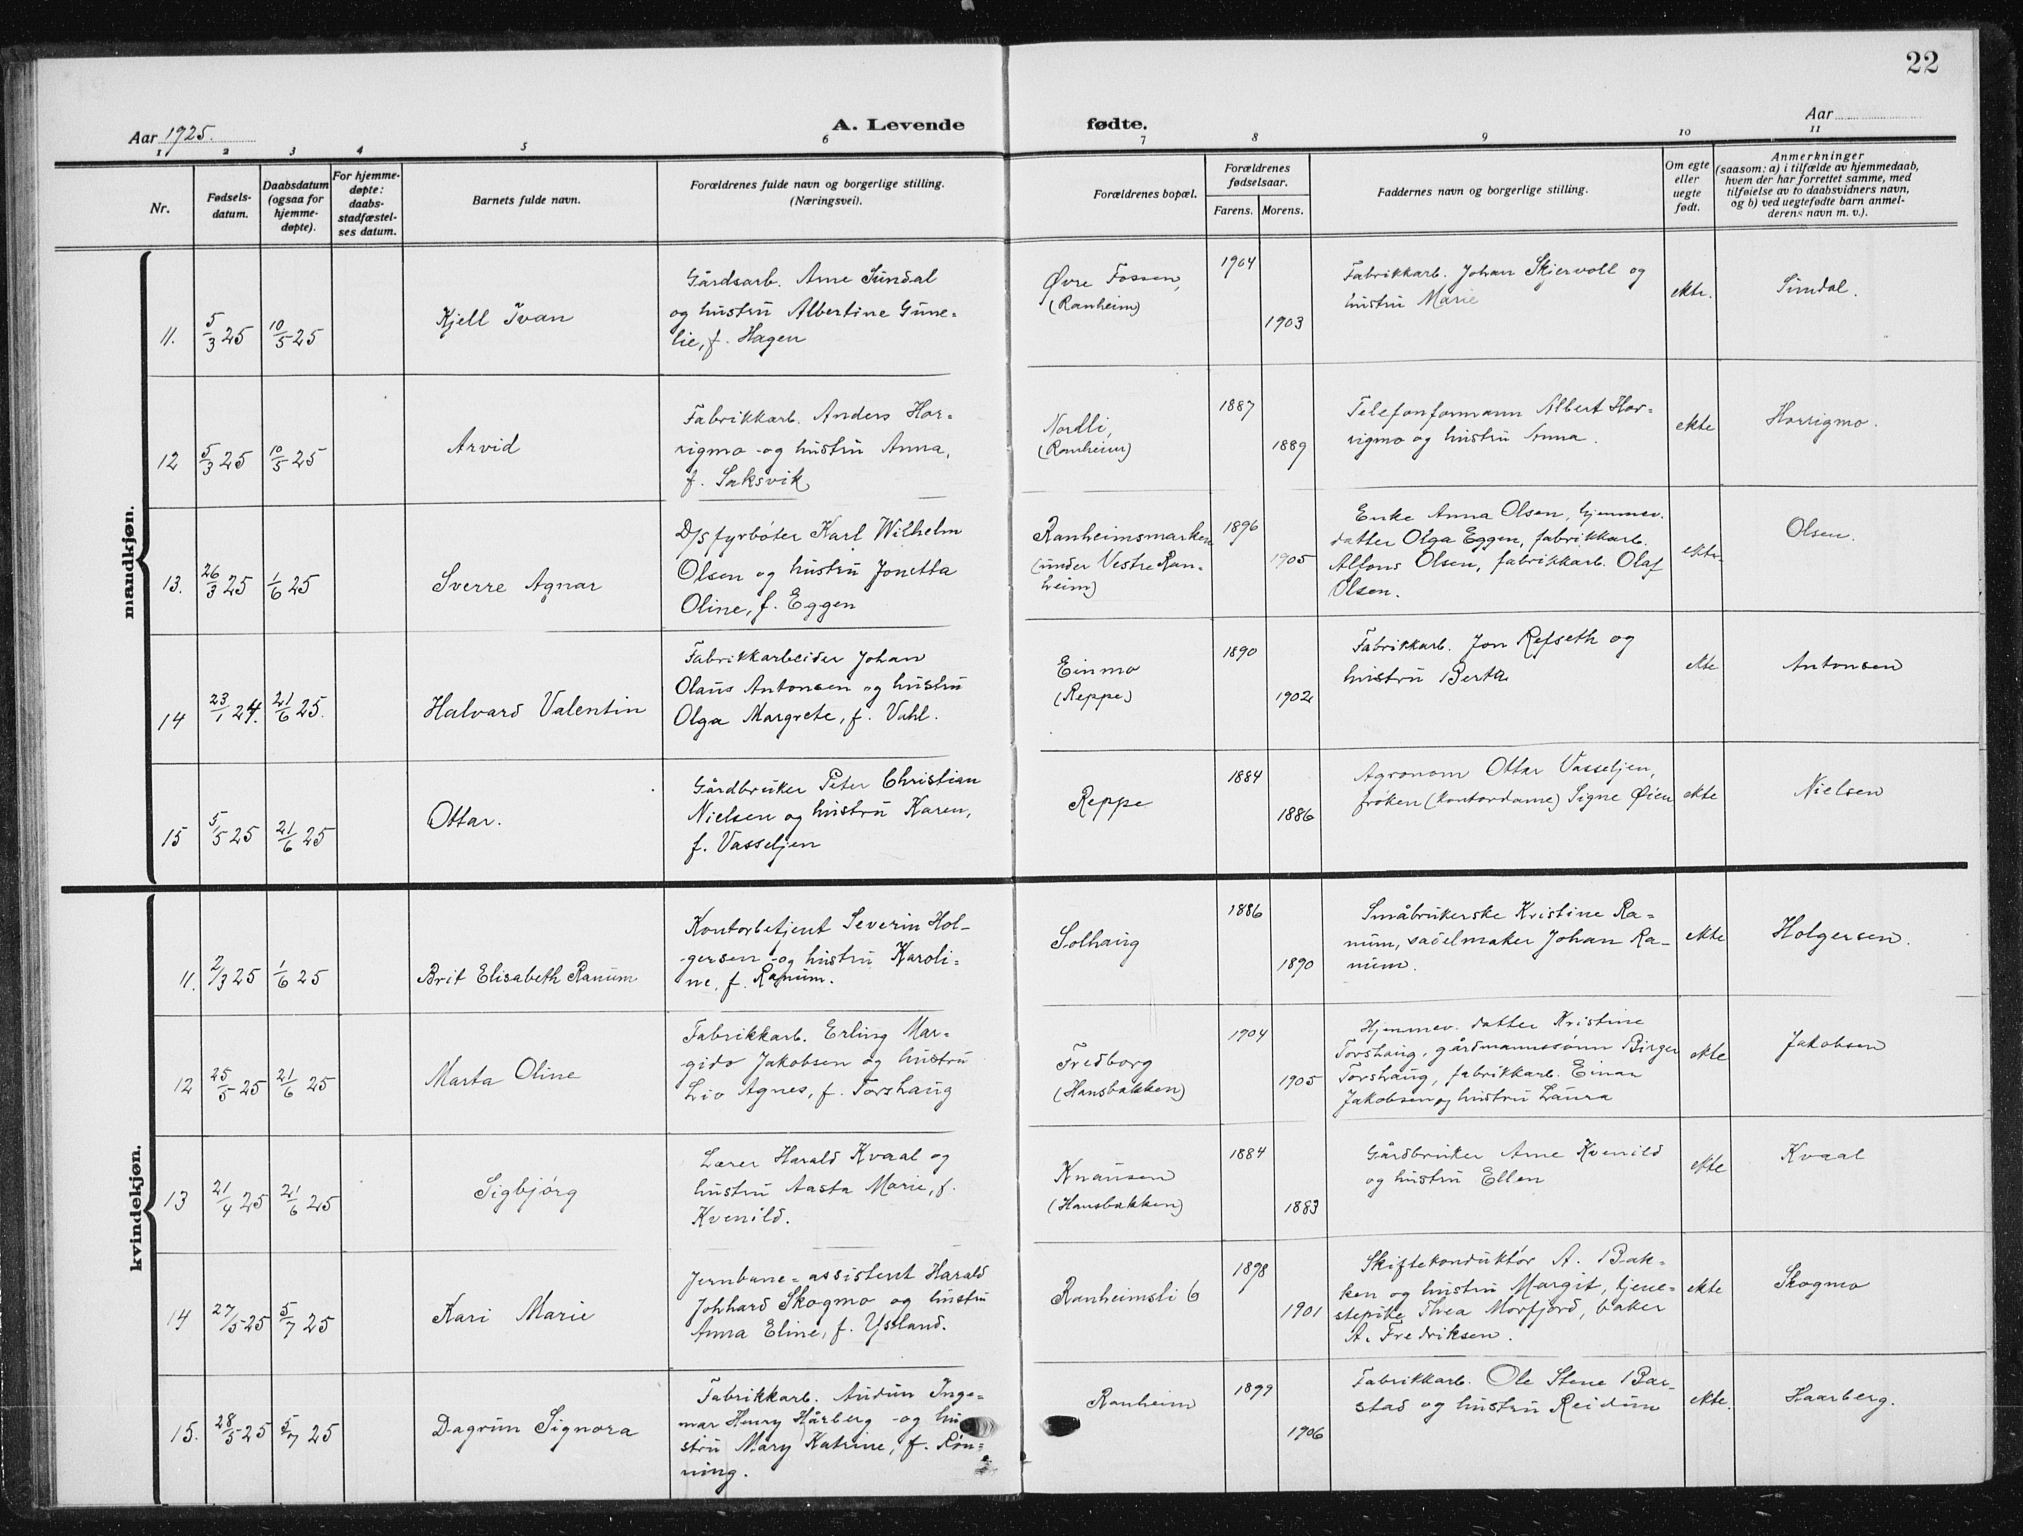 22
Aar 1925.
A. Levende
fødte.
Aar
1 2 3 4 5 6 7 8 9 10 11
Nr.
Fødsels-
datum.
Daabsdatum
(ogsaa for
hjemme-
døpte).
For hjemme-
døpte:
daabs-
stadfæstel-
ses datum.
Barnets fulde navn.
Forældrenes fulde navn og borgerlige stilling.
(Næringsvei).
Forældrenes bopæl.
Forældrenes
fødselsaar.
Farens. Morens.
Faddernes navn og borgerlige stilling.
Om egte
eller
uegte
født.
Anmerkninger
(saasom: a) i tilfælde av hjemmedaab,
hvem der har forrettet samme, med
tilføielse av to daabsvidners navn,
og b) ved uegtefødte barn anmel-
derens navn m. v.).
mandkjøn.
11.
5/3 25
10/5 25
Kjell Ivan
Gårdsarb. Arne Sundal
og hustru Albertine Gune-
lie, f. Hagen
Øvre Fossen,
(Ranheim)
1904
1903
Fabrikkarb. Johan Skjervoll og
hustru Marie
ekte.
Sundal.
12
5/3 25
10/5 25
Arvid
Fabrikkarb. Anders Hor-
rigmo og hustru Anna,
f. Saksvik
Nordli,
(Ranheim)
1887
1889
Telefonformann Albert Hor-
rigmo og hustru Anna.
ekte
Horrigmo.
13.
26/3 25
1/6 25
Sverre Agnar
D/s fyrbøter Karl Wilhelm
Olsen og hustru Jonetta
Oline, f. Eggen
Ranheimsmarken
(under Vestre Ran-
heim)
1896
1905
Enke Anna Olsen, hjemmev.
datter Olga Eggen, fabrikkarb.
Alfons Olsen, fabrikkarb. Olaf
Olsen.
ekte
Olsen.
14
23/1 24.
21/6 25.
Halvard Valentin
Fabrikkarbeider Johan
Olaus Antonsen og hustru
Olga Margrete, f. Vahl.
Einmo
(Reppe)
1890
1902
Fabrikkarb. Jon Refseth og
hustru Berta
ekte
Antonsen
15
5/5 25
21/6 25
Ottar.
Gårdbruker Peter Christian
Nielsen og hustru Karen,
f. Vasseljen
Reppe
1884
1886
Agronom Ottar Vasseljen,
frøken (kontordame) Signe Øien
ekte
Nielsen
kvindekjøn.
11.
2/3 25
1/6 25
Brit Elisabeth Ranum
Kontorbetjent Severin Hol-
gersen og hustru Karoli-
ne, f. Ranum.
Solhaug
1886
1890
Småbrukerske Kristine Ra-
num, sadelmaker Johan Ra-
num.
ekte
Holgersen.
12
25/5 25
21/6 25
Marta Oline
Fabrikkarb. Erling Mar-
gido Jakobsen og hustru
Liv Agnes, f. Torshaug
Fredborg
(Hansbakken)
1904
1905
Hjemmev. datter Kristine
Torshaug, gårdmannssønn Birger
Torshaug, fabrikkarb. Einar
Jakobsen og hustru Laura
ekte
Jakobsen
13
21/4 25
21/6 25
Sigbjørg
Lærer Harald Kvaal og
hustru Aasta Marie, f.
Kvenild.
Knausen
(Hansbakken)
1884
1883
Gårdbruker Arne Kvenild
og hustru Ellen
ekte
Kvaal
14
27/5 25
5/7 25
Kari Marie
Jernbane-assistent Harald
Johhard Skogmo og hustru
Anna Eline, f. Ysland.
Ranheimsli 6
1898
1901
Skiftekonduktør A. Bak-
ken og hustru Margit, tjene-
stepike Thea Morfjord, baker
A. Fredriksen.
ekte
Skogmo
15.
28/5 25
5/7 25
Dagrun Signora
Fabrikkarb. Audun Inge-
mar Henry Hårberg og hu-
stru Mary Katrine, f. Røn-
ning.
Ranheim
1899
1906
Fabrikkarb. Ole Stene Bar-
stad og hustru Reidun
ekte.
Haarberg.